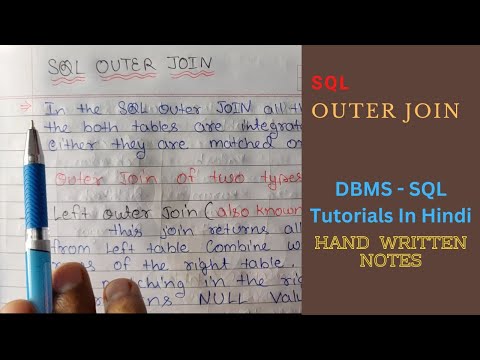 SQL OUTER JOIN
In the SQL outer JOIN all
the both tables are
either they are matched
Outer Join of two types
Left outer Join (also known
this join returns all
from left table Combine
of the right table.
matching in the right
NULL
SQL
OUTER JOIN
DBMS - SQL
Tutorials In Hindi
HAND WRITTEN
NOTES